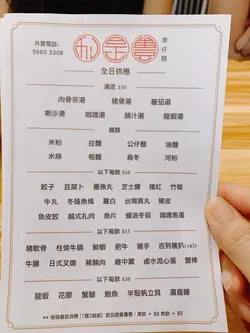 外賣電話:
5660 3306
車仔麵
全日供應
湯底 $30
肉骨茶湯 豬骨湯 蕃茄湯
喇沙湯 咖哩湯 腩汁湯 龍蝦湯
麵類
米粉 拉麵 公仔麵 油麵
米線 粗麵 烏冬 河粉
以下每款 $10
餃子 豆腐卜 墨魚丸 芝士腸 豬紅 竹筍
牛丸 冬蔭魚塊 蘿白 台灣貢丸 豬皮
魚皮餃 越式扎肉 魚片 蠔油冬菇 咖哩魚蛋
以下每款 $15
豬軟骨 柱侯牛腩 鮮蝦 肥牛 豬手 吉列豬扒(+$3)
牛𦟌 日式叉燒 豬腩肉 雞中翼 鹵水流心蛋 蟹棒
以下每款 $38
龍蝦 花膠 蟹腳 鮑魚 半殼帆立貝 廣島蠔